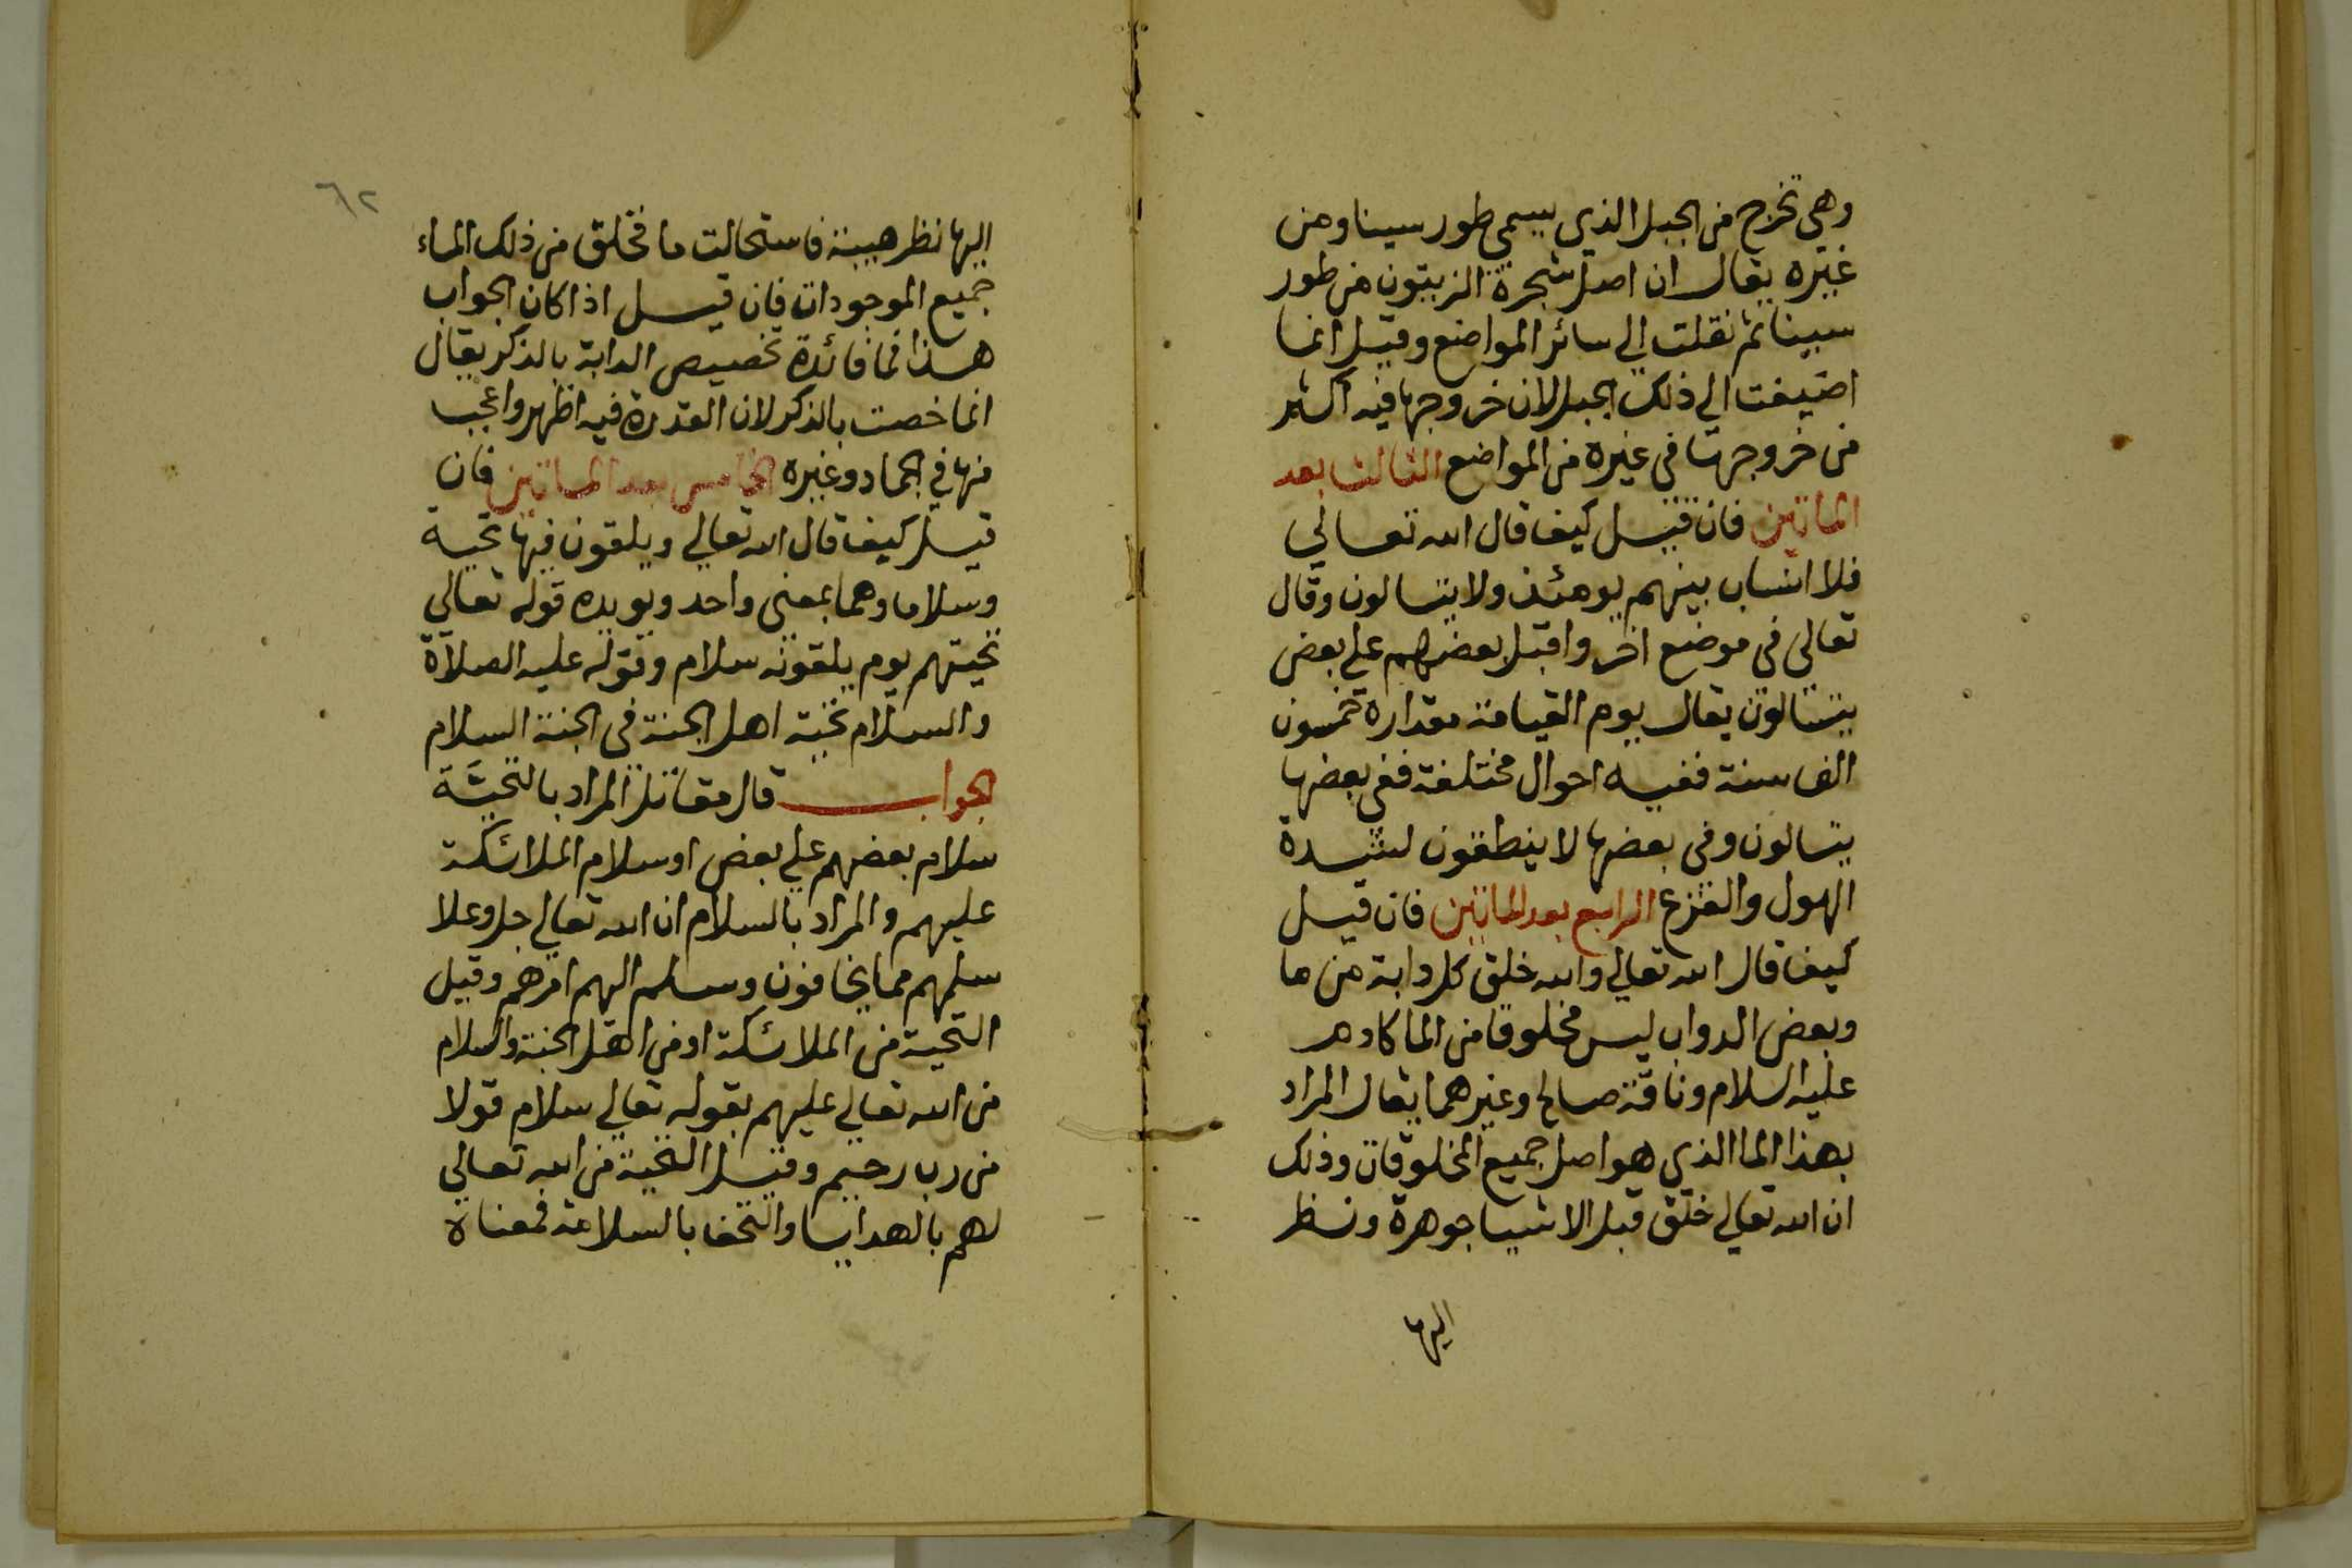 وهي تخرج من الجبل الذي يسمي طور سينا ومن
غيره يقال ان اصل شجرة الزيتون من طور
سينا ثم نقلت الي سائر المواضع وقيل انما
اضيفت الي ذلك الجبل لان خروجها فيه اكثر
من خروجها في غيره من المواضع الثالث بعد
الماتين فان قيل كيف قال الله تعالي
فلا انساب بينهم يومئذ ولا يتسالون وقال
تعالي في موضع اخر واقبل بعضهم علي بعض
يتسالون يقال يوم القيامة مقداره خمسون
الف سنة ففيه احوال مختلفة ففي بعضها
يتسالون وفي بعضها لا ينطقون لشدة
الهول والفزع الرابع بعد الماتين فان قيل
كيف قال الله تعالي والله خلق كل دابة من ما
وبعض الدواب ليس مخلوقا من الما كادم
عليه السلام وناقة صالح وغيرهما يقال المراد
بهذا الما الذي هو اصل جميع المخلوقات وذلك
ان الله تعالي خلق قبل الاشيا جوهرة ونظر
اليها
٦٢
اليها نظر هيبة فاستحالت ما فخلق من ذلك الماء
جميع الموجودات فان قيل اذا كان الجواب
هذا فما فائدة تخصيص الدابة بالذكر يقال
انما خصت بالذكر لان القدرة فيه اظهر واعجب
منها في الجماد وغيره الخامس بعد الماتين فان
قيل كيف قال الله تعالي ويلقون فيها تحية
وسلاما وهما بمعني واحد ويويده قوله تعالي
تحيتهم يوم يلقونه سلام وقوله عليه الصلاة
والسلام تحية اهل الجنة في الجنة السلام
الجواب قال مقاتل المراد بالتحيَّة
سلام بعضهم علي بعض او سلام الملائكة
عليهم والمراد بالسلام ان الله تعالي جل وعلا
سلمهم مما يخافون وسلم اليهم امرهم وقيل
التحية من الملائكة او من اهل الجنة والسلام
من الله تعالي عليهم بقوله تعالي سلام قولا
من رب رحيم وقيل التحية من الله تعالي
لهم بالهدايا والتحف بالسلامة فمعناه